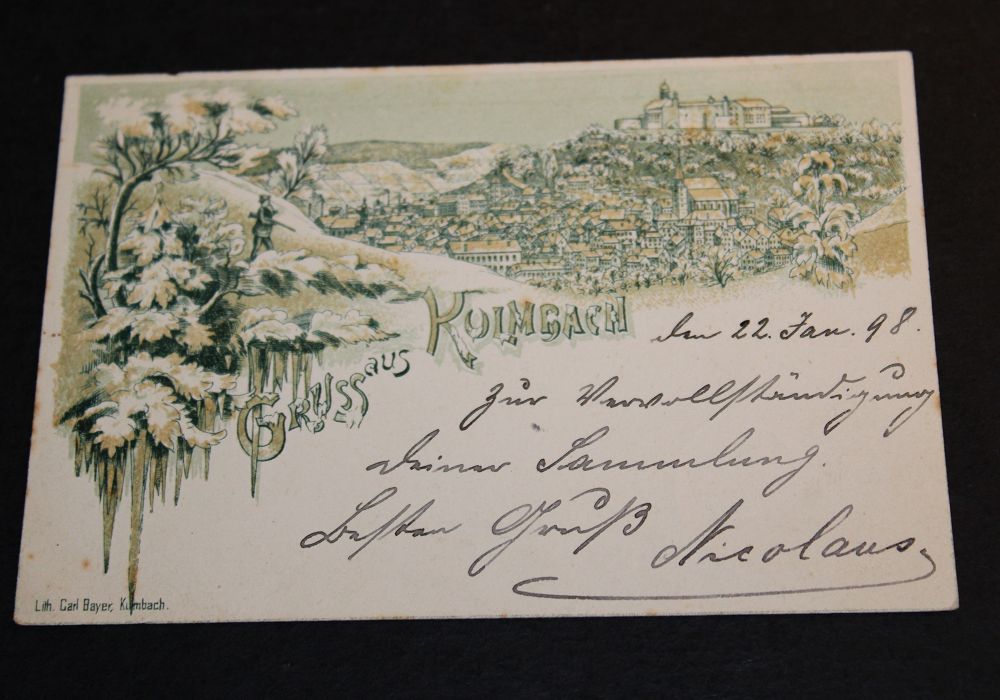 Gruss aus
Kulmbach
den 22. Jan. 98.
Zur Vervollständigung
deiner Sammlung.
Besten Gruß
Nicolaus.
Lith. Carl Bayer, Kulmbach.